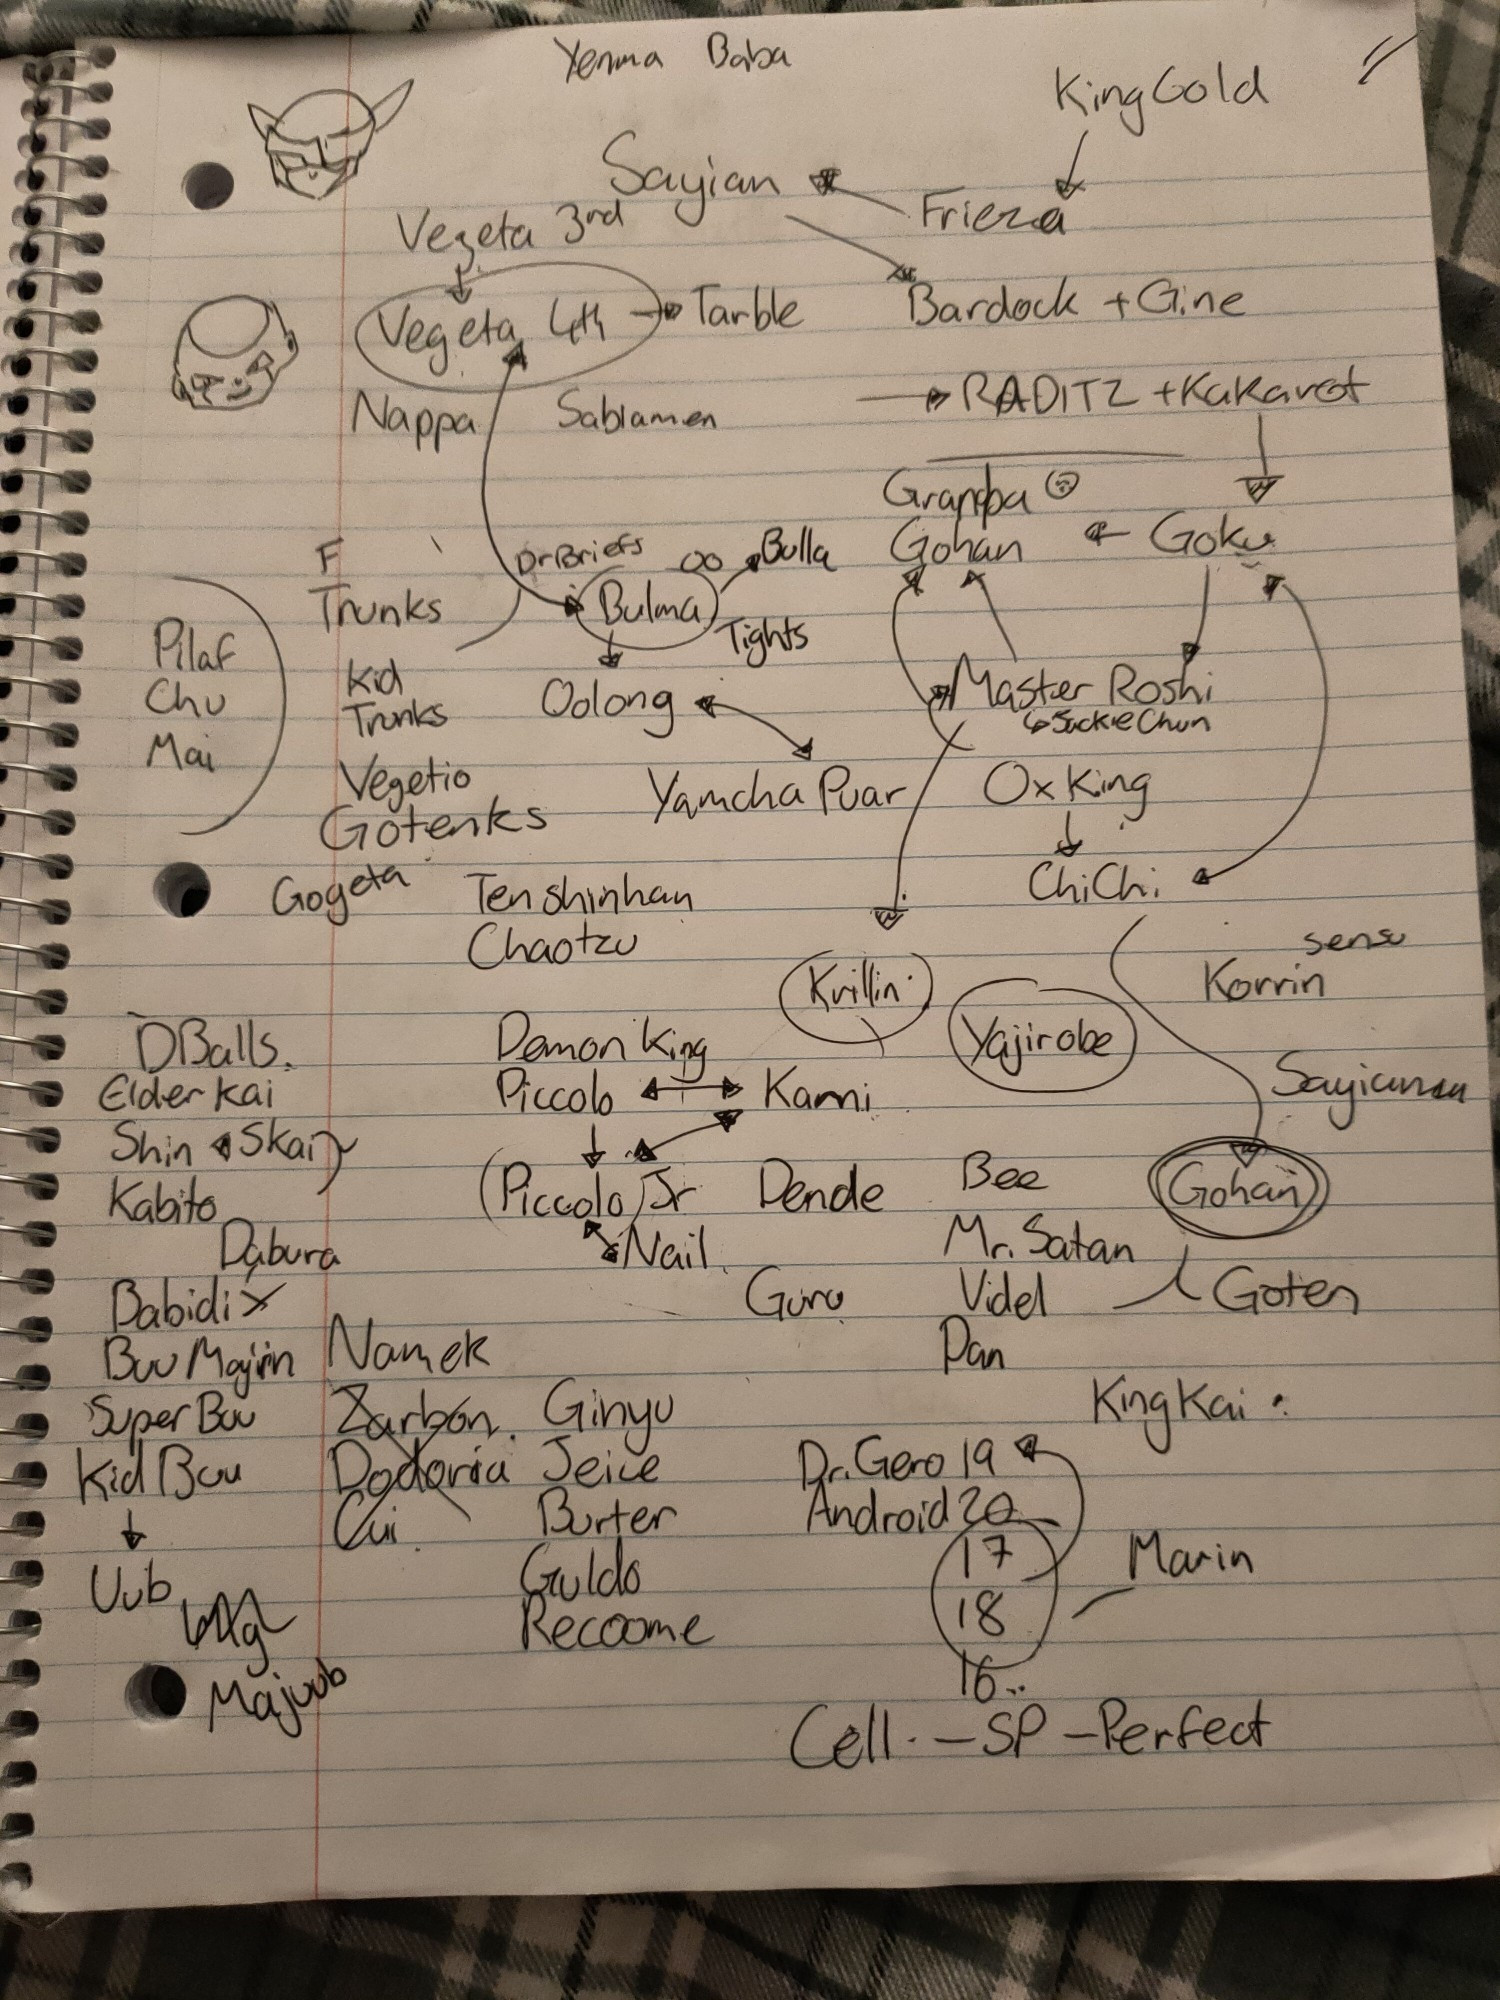 Yemma Baba
King Gold
Sayian
Frieza
Vegeta 3rd
Vegeta 4th Tarble
Bardock + Gine
Nappa Sablamen
RADITZ + Kakarot
Grandpa
Gohan
Goku
F
Trunks
Dr Briefs
Bulla
Bulma
Tights
Pilaf
Chu
Mai
Kid
Trunks
Oolong
Master Roshi
JackieChun
Vegetio
Gotenks
Gogeta
Yamcha Puar
Ox King
ChiChi
Tenshinhan
Chaotzu
Krillin
Yajirobe
sensu
Korrin
DBalls.
Elder Kai
Shin Skai
Kabito
Dabura
Babidi
Buu Majin
Super Buu
Kid Buu
Uub
Majuub
Demon King
Piccolo Kami
Piccolo Jr
Nail
Dende
Guru
Sayiaman
Gohan
Goten
Bee
Mr. Satan
Videl
Pan
King Kai :
Namek
Zarbon.
Dodoria
Cui
Ginyu
Jeice
Burter
Guldo
Recoome
Dr. Gero 19
Android 20
17
18
16..
Marin
Cell. - SP - Perfect